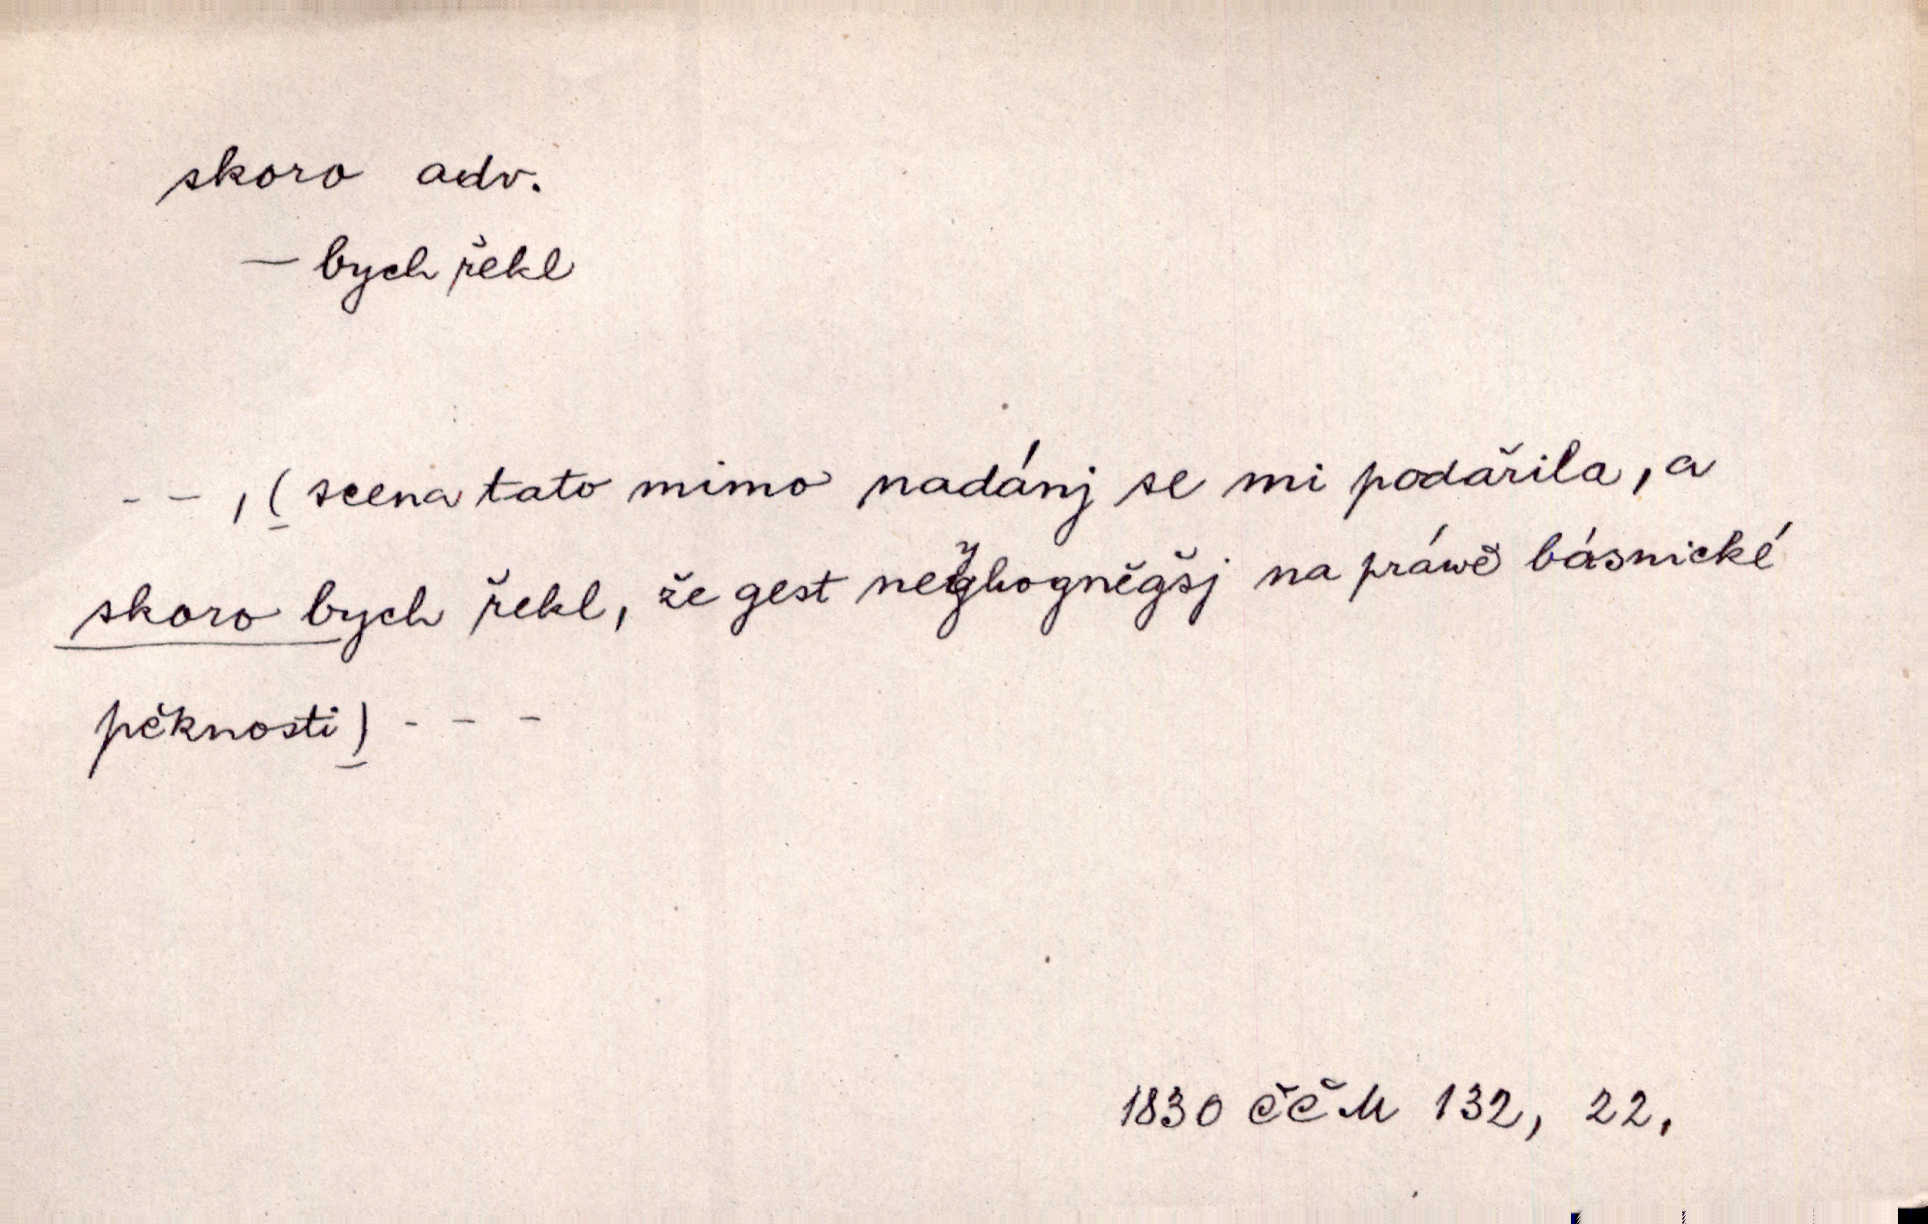 skoro adv.
— bych řekl
- - , ( scena tato mimo nadánj se mi podařila, a
skoro bych řekl, že gest neğhogněgšj na práwě básnické
pěknosti) - - -
1830 ČČM 132, 22.